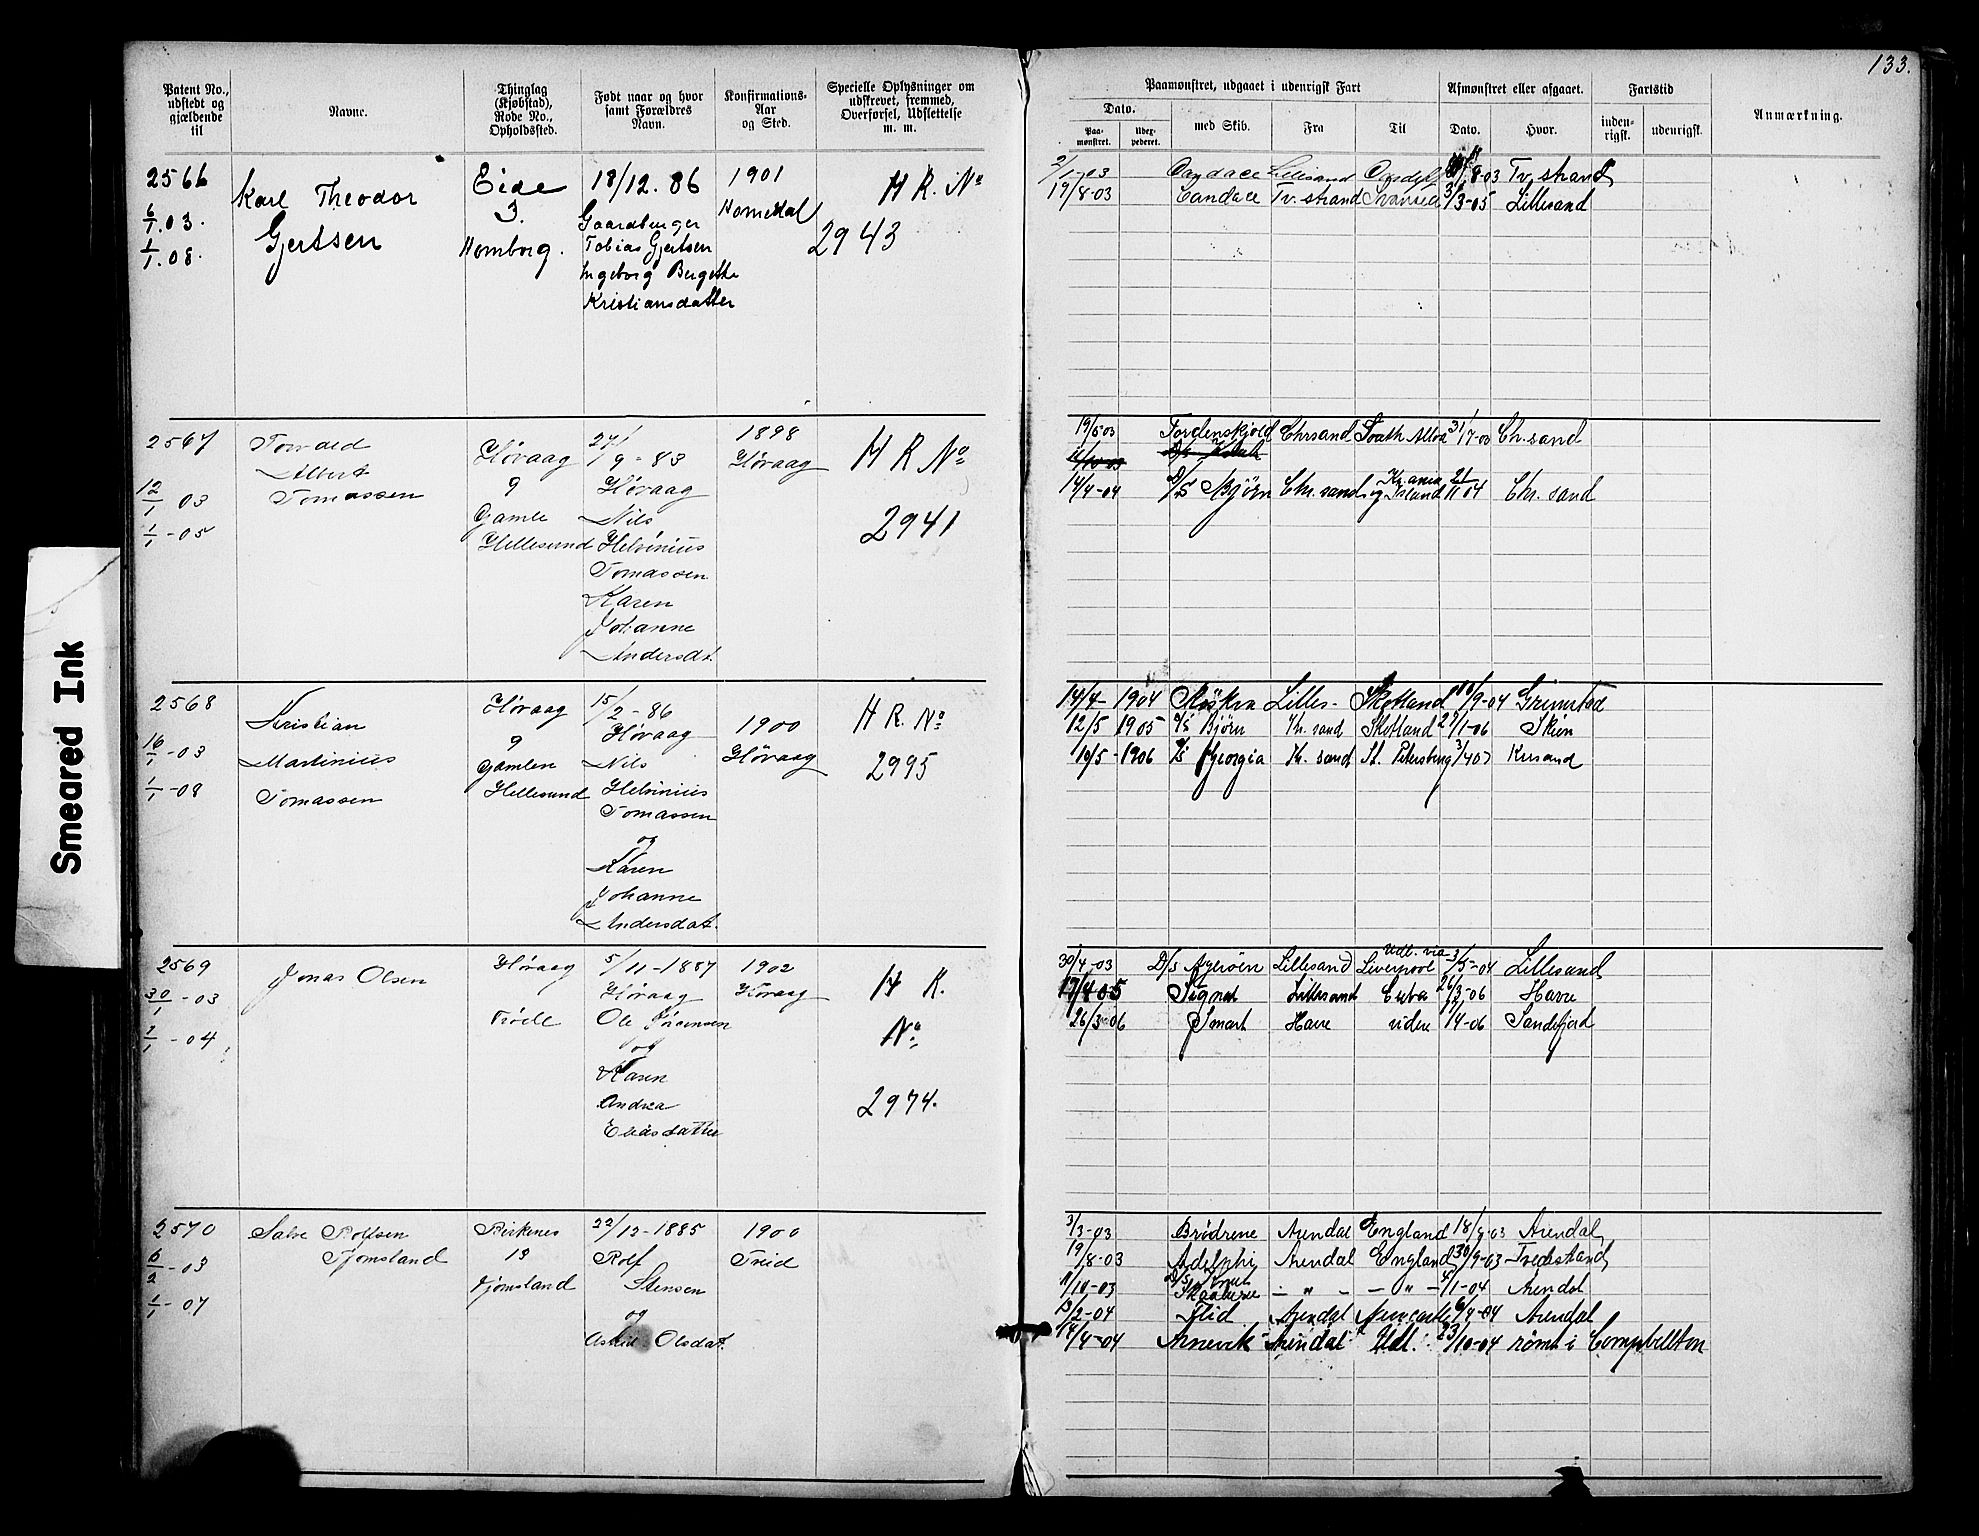 133.
Patent No., udstedt og gjældende til
Navne.
Thinglag (Kjøbstad), Rode No., Opholdssted.
Født naar og hvor samt Forældres Navn.
Konfirmations-Aar og Sted.
Specielle Oplysninger om udskrevet, fremmed, Overførsel, Udslettelse m. m.
Paamønstret, udgaaet i udenrigsk Fart
Afmønstret eller afgaaet.
Fartstid
Anmærkning.
Dato.
Paa-mønstret.
Udex-pederet.
med Skib.
Fra
Til
Dato.
Hvor.
inden-rigsk.
udenrigsk.
2566
6/1.03.
1/1.08.
Karl Theodor
Gjertsen
Eide
3.
Homborg.
18/12.86
Gaardbruger
Tobias Gjertsen
Ingeborg Bergette
Kristiansdatter
1901
Homedal
H R. No
2943
2/1-03 Candace Lillesand 8-03 Tv.strand
19/8-03 Candace Tv.strand 3/3-05 Lillesand
2567
12/1 03
1/1-05
Torvald
Albert
Tomassen
Høvaag
9
Gamle
Hellesund
27/9-83
Høvaag
Nils
Helvinius
Tomassen
Karen
Johanne
Andersdt.
1898
Høvaag
H R No
2941
19/5 03 Tordenskjold Chrsand South Alloa 31/7-03 Ch.sand
14/4-04 D/S Bjørn Chr.sand og Island 21/11 04 Chr. sand
2568
16/1-03
1/1-08
Kristian
Martinius
Tomassen
Høvaag
9
Gamlen
Hellesund
15/2-86
Høvaag
Nils
Helvinius
Tomassen
og
Karen
Johanne
Andersdat.
1900
Høvaag
H R. No
2995
14/4-1904 Lilles- Skotland 10/9-04 Grimstad
12/5 1905 D/S Bjørn Kr. sand Skotland 29/1-06 Skien
10/5-1906 D/S Georgia Kr. sand St. Petersburg 3/4 07 Krsand
2569
30/1-03
1/1-04
Jonas Olsen
Høvaag
Trøe
5/11-1887
Høvaag
Ole Jörgensen
og
Karen
Andrea
Eliasdatter
1902
Høvaag
H R.
No
2974.
30/4-03 D/S Agerøen Lillesand Udl. via Liverpool 3/5-04 Lillesand
17/4 05 Signal Lillesand Cuba 26/3-06 Havre
26/3-06 Smart Havre videre 14-06 Sandefjord
2570
6/2-03
1/1-07
Salve Rolfsen
Tjomsland
Birkenes
13
Tjomsland
22/12-1885
Rolf
Stensen
og
Olsdat.
1900
Treid
3/3-03 Brödrene Arendal England 18/8-03 Arendal
19/8-03 Adelphi Arendal England 30/9-03 Tvedestrand
11/10-03 D/S - " - - " - 4/1-04 Arendal
13/2-04 Flid Arendal Newcastle 6/4-04 Arendal
14/4-04 Annevik Arendal Udl. 23/10-04 römt i Campbellton
Smeared Ink